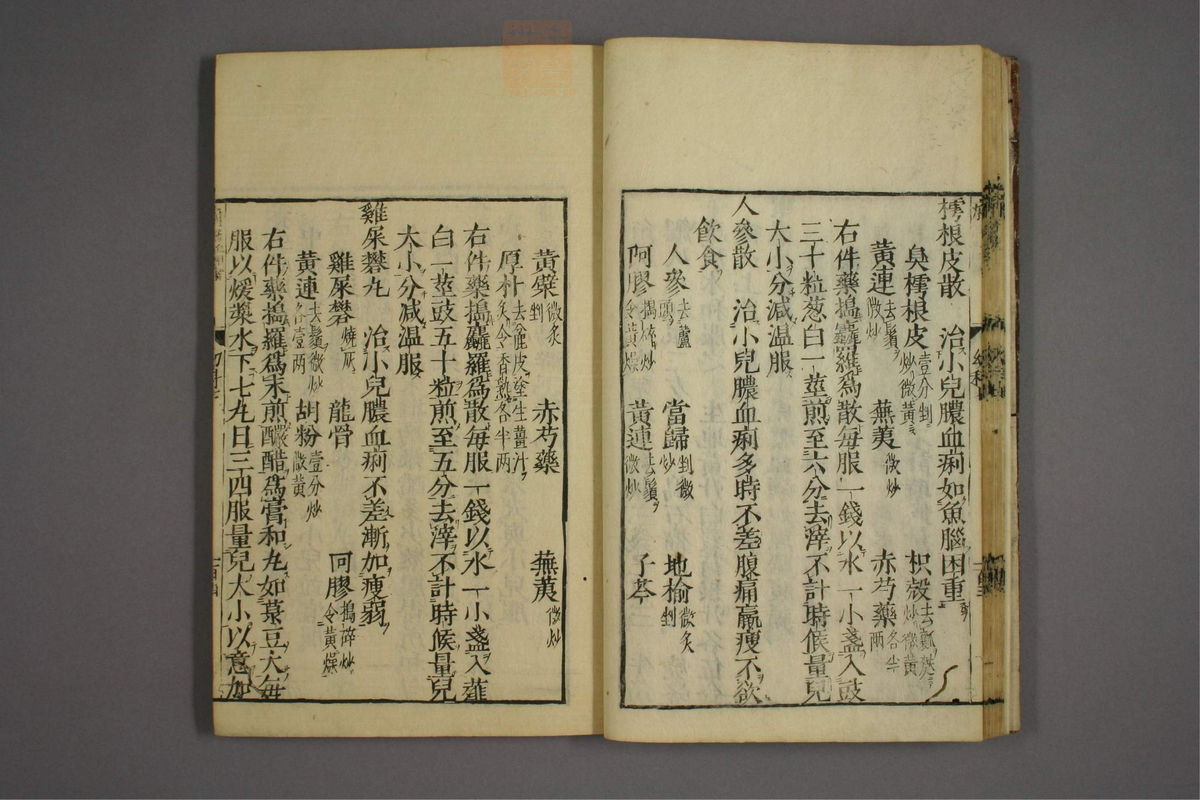 樗根皮散　治小兒膿血痢如魚腦困重
臭樗根皮壹分剉炒微黃　枳殼去瓤麩炒微黃
黃連去鬚微炒　蕪荑微炒　赤芍藥各半兩
右件藥搗麤羅爲散每服一錢以水一小盞入豉
三十粒葱白一莖煎至六分去滓不計時候量兒
大小分減溫服
人參散　治小兒膿血痢多時不差腹痛羸瘦不欲
飲食
人參去蘆頭　當歸剉微炒　地榆微炙剉
阿膠搗碎炒令黃燥　黃連去鬚微炒　子芩
黃蘗微炙剉　赤芍藥　蕪荑微炒
厚朴去麄皮塗生薑汁炙令香熟各半兩
右件藥搗麤羅爲散每服一錢以水一小盞入薤
白一莖豉五十粒煎至五分去滓不計時候量兒
大小分減溫服
雞屎礬丸　治小兒膿血痢不差漸加瘦弱
雞屎礬燒灰　龍骨　阿膠搗碎炒令黃燥
黃連去鬚微炒各壹兩　胡粉壹分炒微黃
右件藥搗羅爲末煎釅醋爲膏和丸如菉豆大每
服以煖漿水下七丸日三四服量兒大小以意加